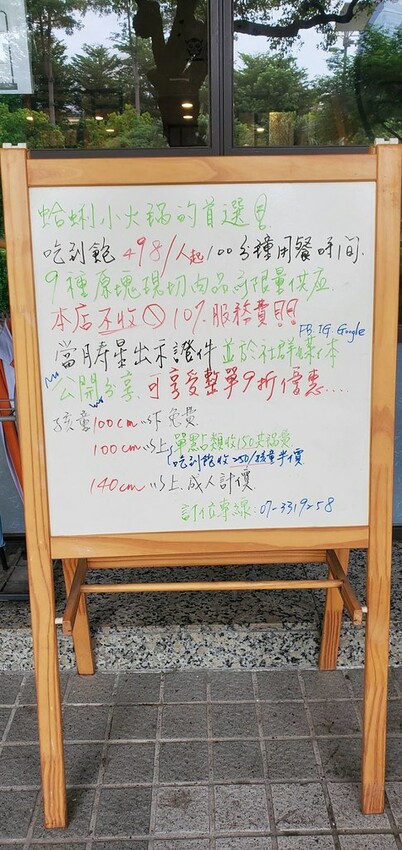 蛤蜊小火鍋的首選!
吃到飽 498/人起 100分鐘用餐時間.
9種原塊現切肉品不限量供应
本店不收 10% 服務費!!
FB. IG. Google
當月壽星出示證件 並於社群媒体
公開分享. 可享受整單9折優惠....
孩童100cm以下免費.
100cm以上 單點類收150共鍋費
吃到飽收250/孩童半價
140cm以上.成人計價.
訂位專線: 07-3319258